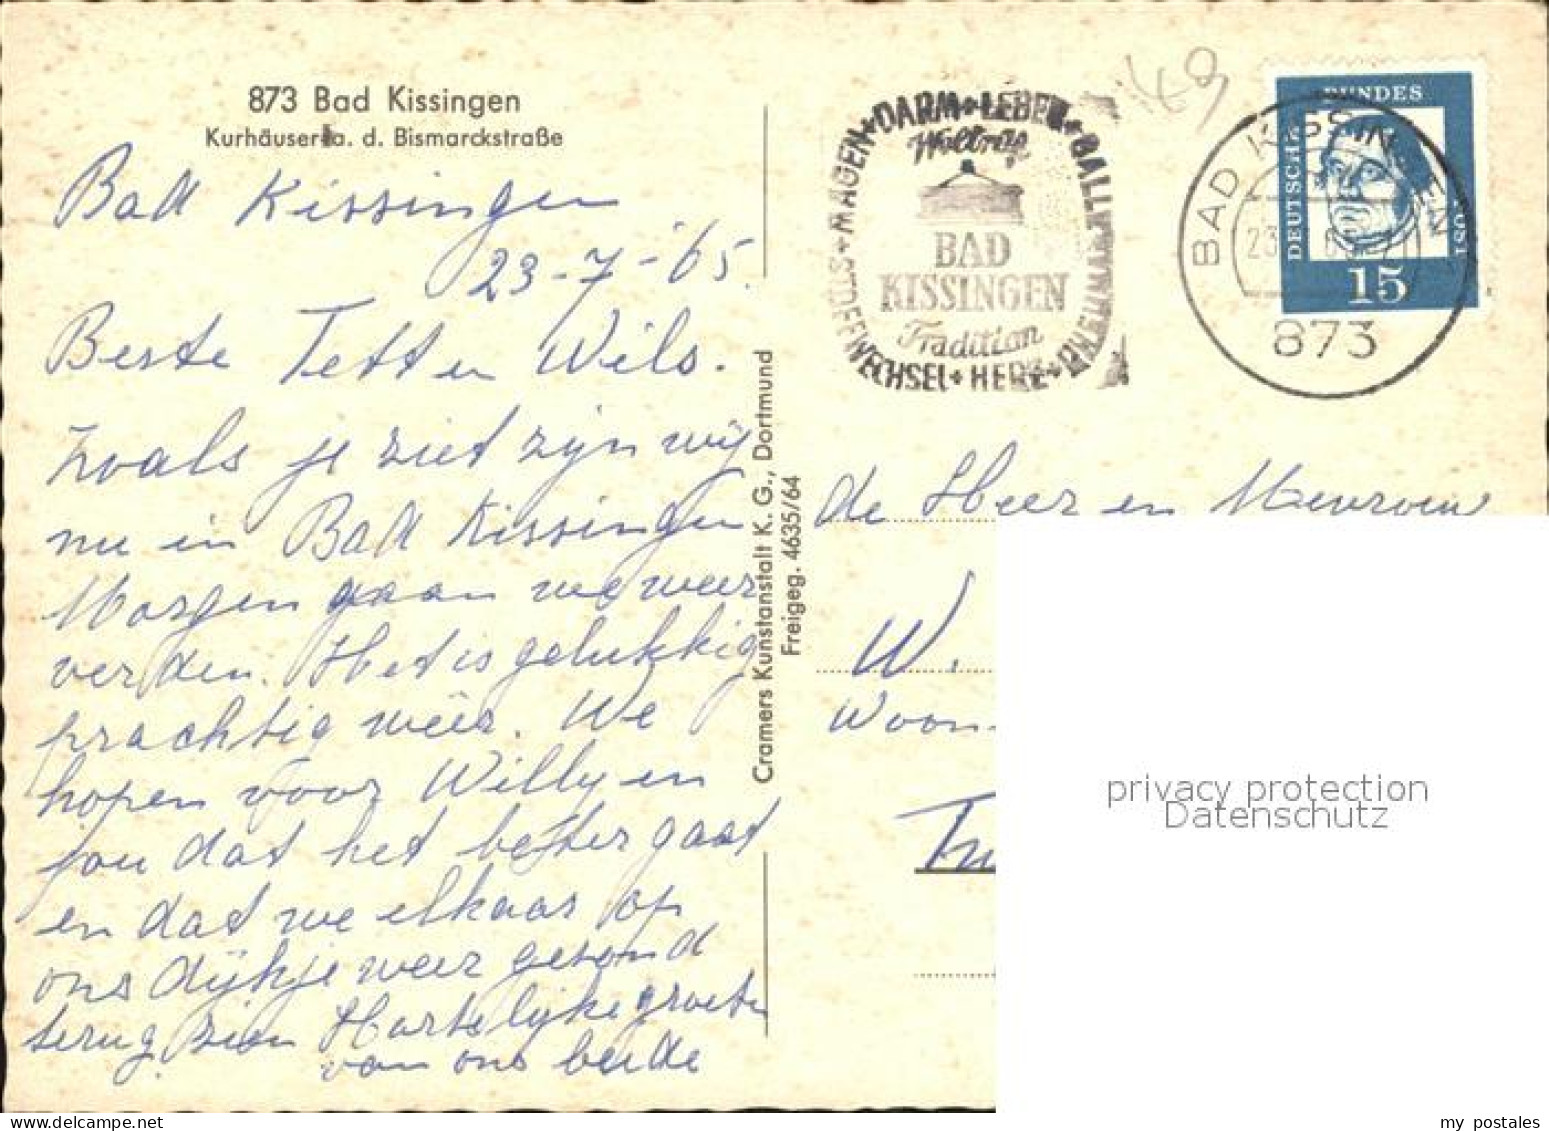 873 Bad Kissingen
Kurhäuser a. d. Bismarckstraße
Bad Kissingen
23-7-'65.
Beste Tetta en Wils.
Zoals je ziet zijn wij
nu in Bad Kissingen
Morgen gaan we weer
verden. Het is gelukkig
prachtig wêer. We
hopen voor Willy en
jou dat het better gaat
en dat we elkaar op
ons dijkje weer gezond
terug zien Hartelijke groeten
van ons beide
Cramers Kunstanstalt K. G., Dortmund
Freigeg. 4635/64
STOFFWECHSEL + MAGEN + DARM + LEBER + GALLE + RHEUMA + HERZ
Weltruf
BAD
KISSINGEN
Tradition
49
DEUTSCHE
BUNDES
POST
15
BAD KISSINGEN
23
873
de Heer en Mevrouw
W.
Woon
privacy protection
Datenschutz
my postales